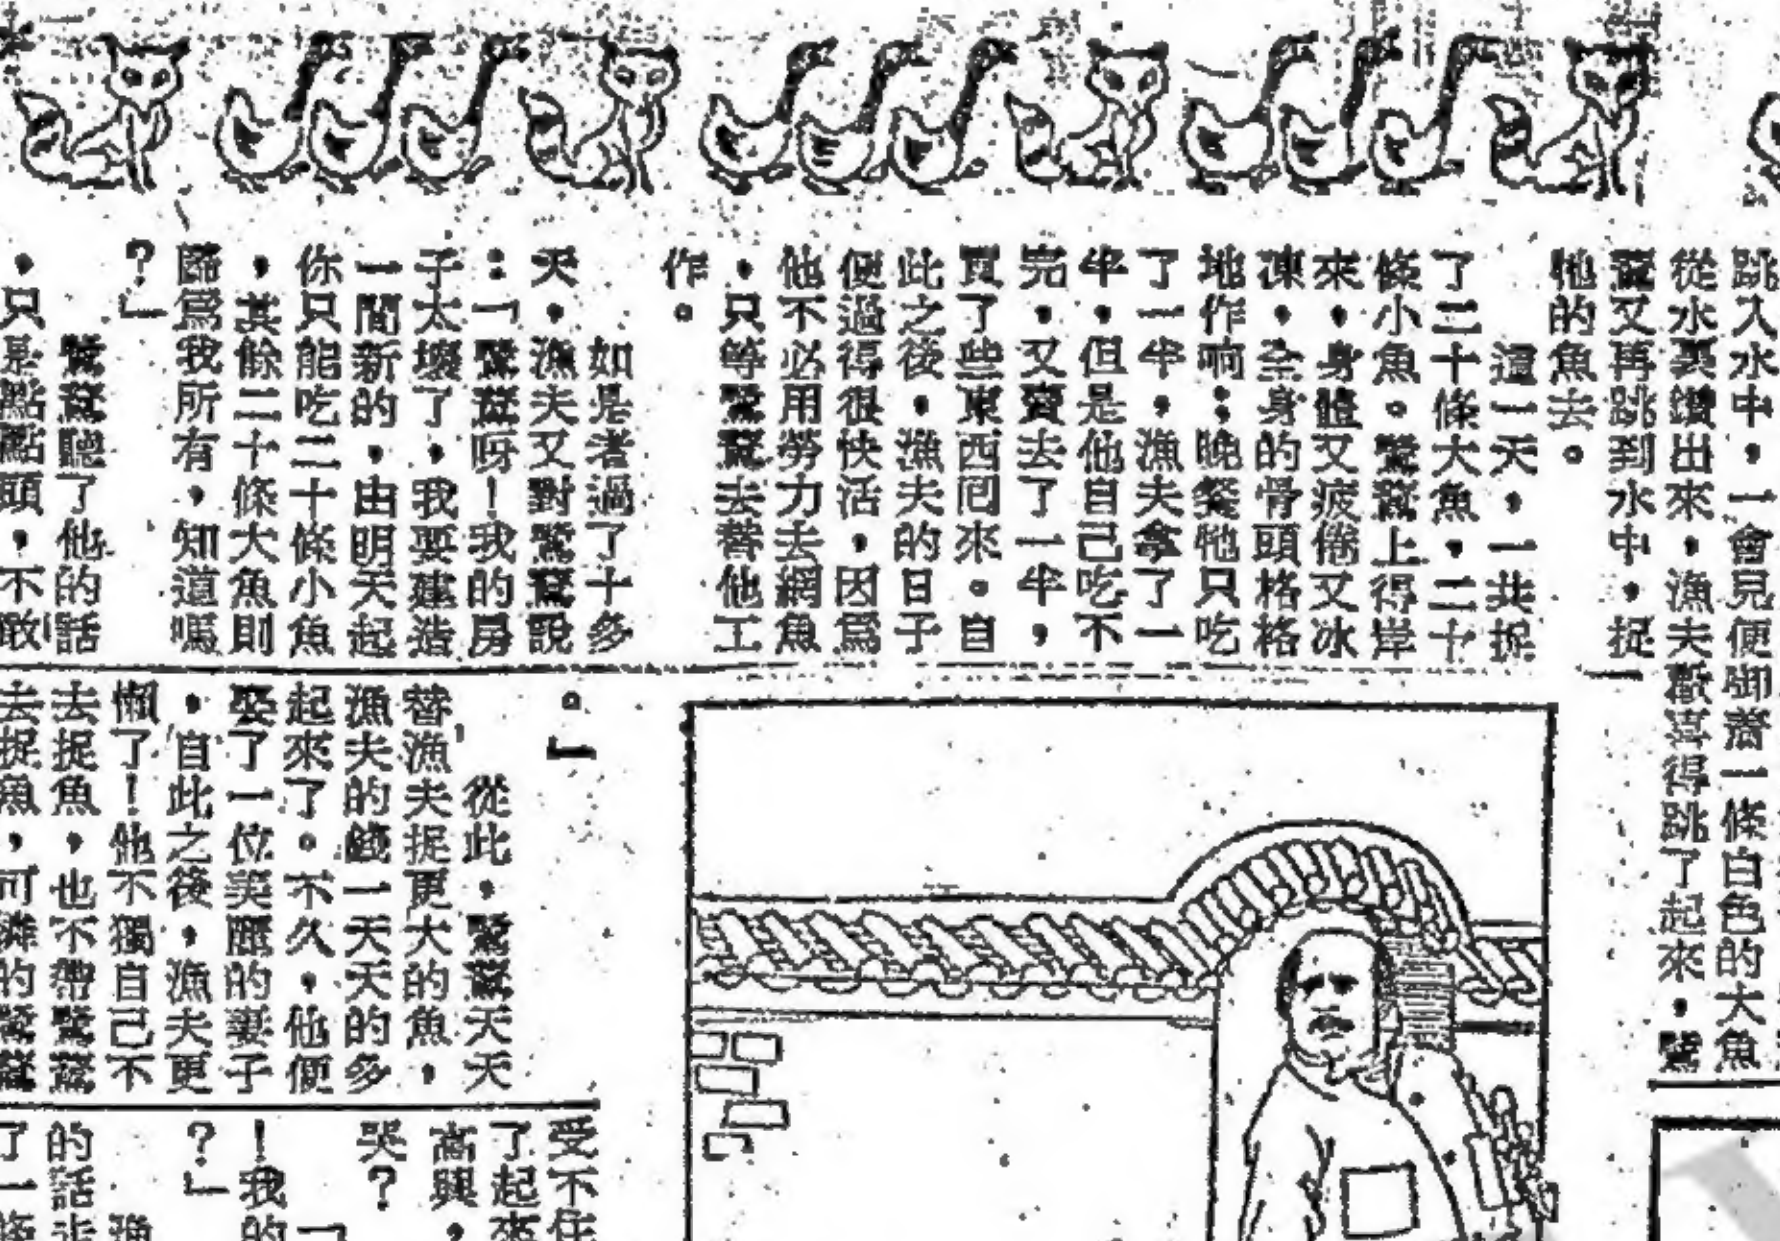 跳入水中，一會兒便啣着一條白色的大魚
從水裏鑽出來，漁夫歡喜得跳了起來，鷺
鷥又再跳到水中，捉
牠的魚去。
這一天，一共捉
了二十條大魚，二十
條小魚。鷺鷥上得岸
來，身體又疲倦又冰
凍，全身的骨頭格格
地作响；晚餐牠只吃
了一半，漁夫拿了一
半，但是他自己吃不
完，又賣去了一半，
買了些東西囘來。自
此之後，漁夫的日子
便過得很快活，因爲
他不必用勞力去網魚
，只等鷺鷥去替他工
作。
如是者過了十多
天，漁夫又對鷺鷥說
：「鷺鷥呀！我的房
子太壞了，我要建造
一間新的，由明天起
你只能吃二十條小魚
，其餘二十條大魚則
歸爲我所有，知道嗎
？」
鷺鷥聽了他的話
，只是點點頭，不敢
。」
從此，鷺鷥天天
替漁夫捉更大的魚，
漁夫的錢一天天的多
起來了。不久，他便
娶了一位美麗的妻子
，自此之後，漁夫更
懶了！他不獨自己不
去捉魚，也不帶鷺鷥
去捉魚，可憐的鷺鷥
受不住
了起來
高興，
哭？
「
！我的
？」
漁
的話
了一條